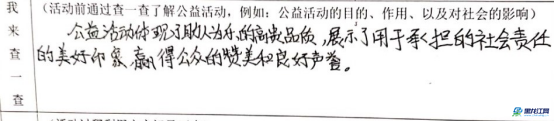 我来查一查
(活动前通过查一查了解公益活动，例如：公益活动的目的、作用、以及对社会的影响)
公益活动体现了助人为乐的高贵品质，展示了用于承担的社会责任
的美好印象，赢得公众的赞美和良好声誉。
黑龙江网